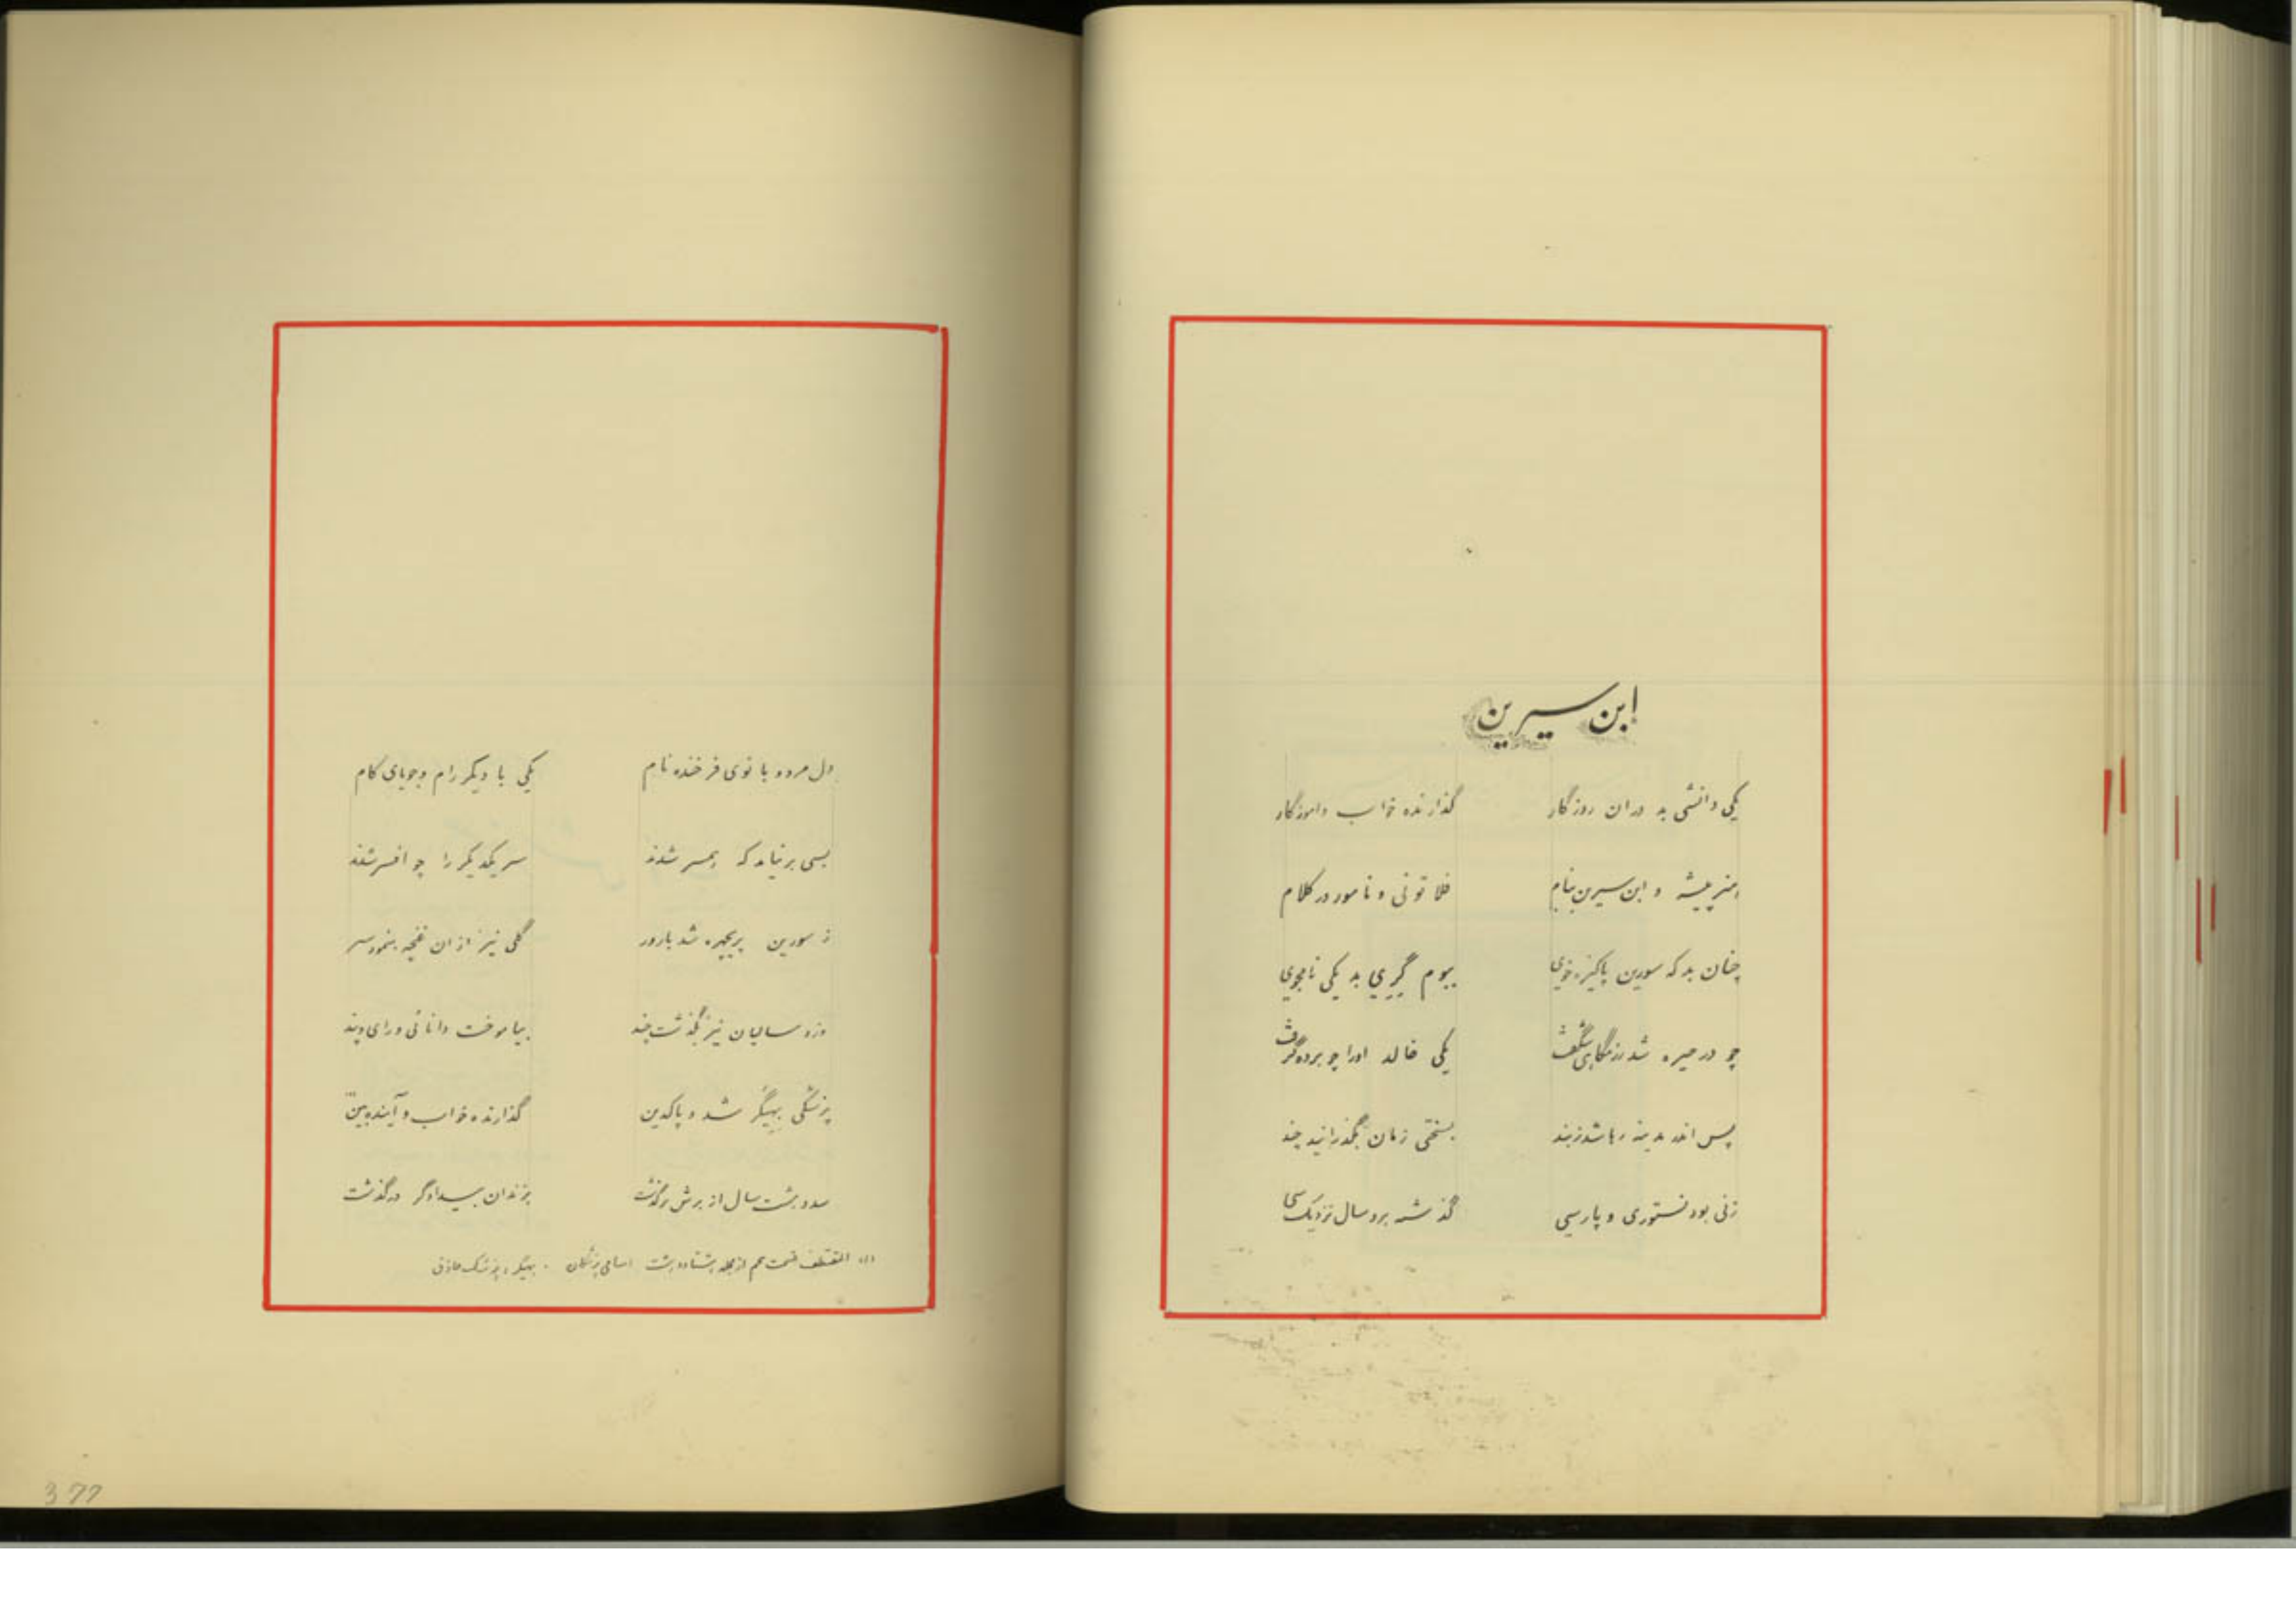 ابن سیرین
یکی دانشی بد دران روزگار گذارنده خواب و آموزگار
هنر پیشه و ابن سیرین بنام فلاتونی و نامور در کلام
چنان بد که سورین پاکیزه خوی ببوم گریری بد یکی نامجوی
چو در حیره شد رزمگاهی شگفت یکی خالد او را چو برده گرفت
پس اندر مدینه رها شد ز بند بسختی زمان بگذرانید چند
زنی بود نستوری و پارسی گذشته برو سال نزدیک سی
دل مرد و بانوی فرخنده نام یکی با دیگر رام و جویای کام
بسی بر نیامد که همسر شدند سر یکدیگر را چو افسر شدند
ز سورین پریچهره شد بارور گلی نیز از ان غنچه بنمود سر
وزو سالیان نیز بگذشت چند بیاموخت دانائی و رای و پند
پزشکی بهیگر شد و پاکدین گذارنده خواب و آینده بین
صد و هشت سال از برش برگذشت بزندان بیدادگر درگذشت
(۱) المقتطف قسمت از مجله هشتاد و هشت اسامی پزشکان . بهیگر : پزشک حاذق
377